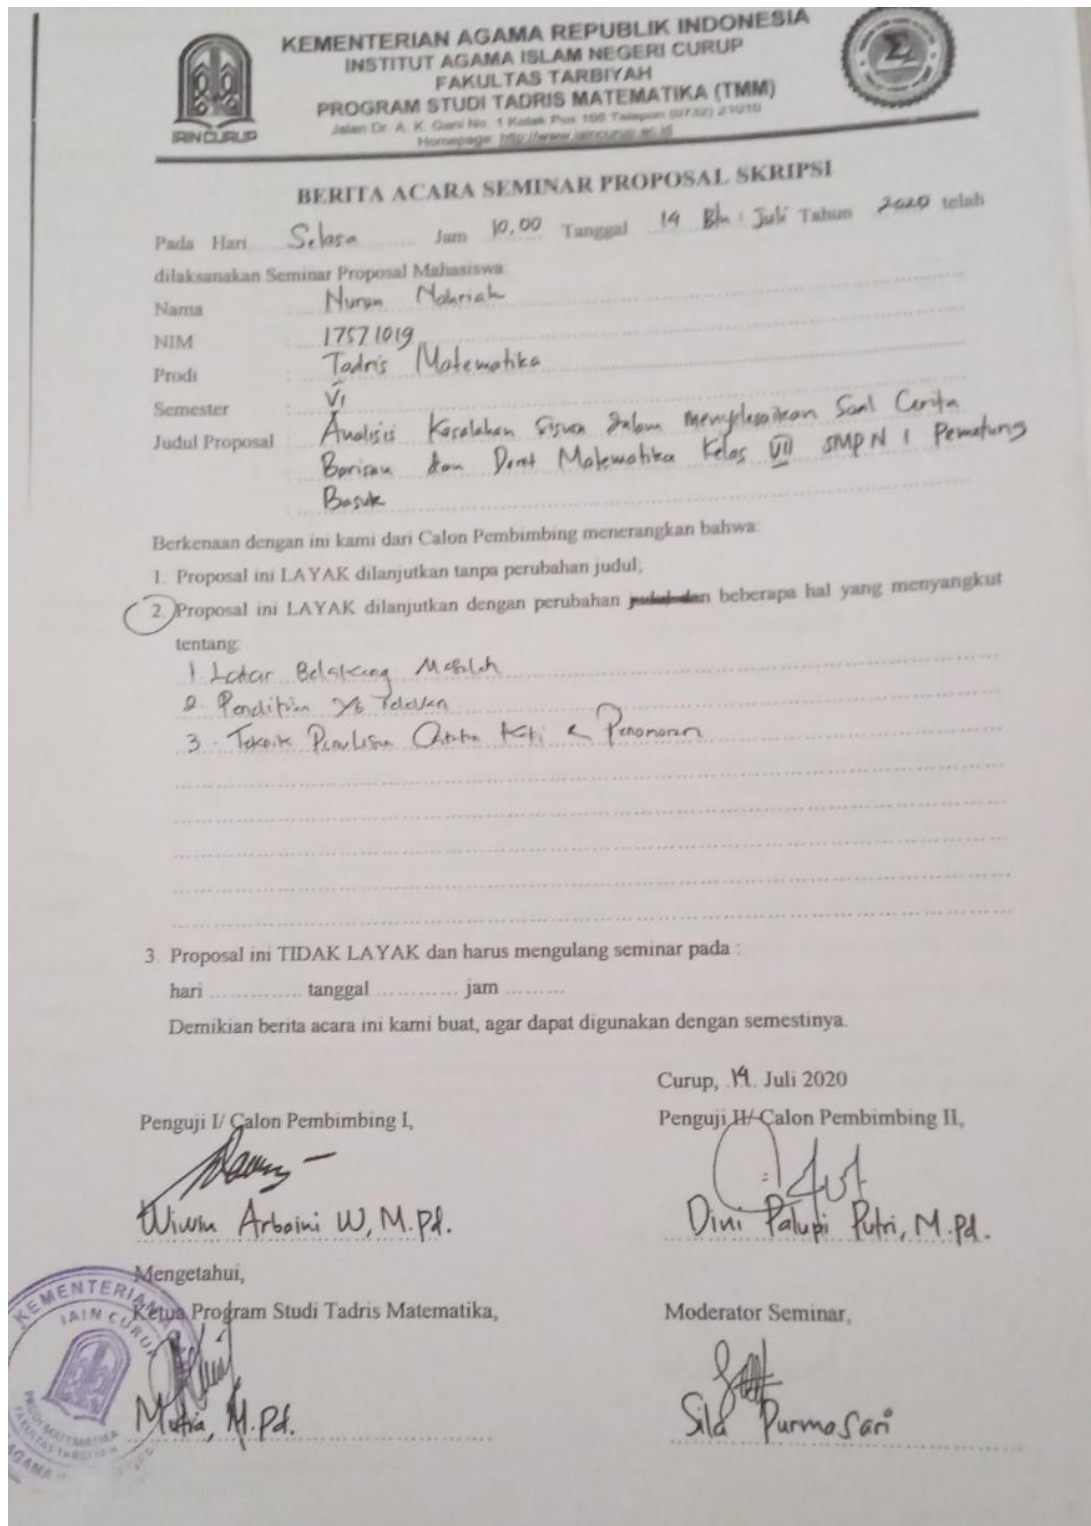 KEMENTERIAN AGAMA REPUBLIK INDONESIA
INSTITUT AGAMA ISLAM NEGERI CURUP
FAKULTAS TARBIYAH
PROGRAM STUDI TADRIS MATEMATIKA (TMM)
Jalan Dr. A. K. Gani No. 1 Kotak Pos 108 Telepon (0732) 21010
Homepage http://www.iaincurup.ac.id
IAIN CURUP
BERITA ACARA SEMINAR PROPOSAL SKRIPSI
Pada Hari Selasa Jam 10.00 Tanggal 14 Bln : Juli Tahun 2020 telah
dilaksanakan Seminar Proposal Mahasiswa:
Nama : Nurun
NIM : 17571019
Prodi : Tadris Matematika
Semester : VI
Judul Proposal : Analisis Kesalahan Siswa dalam menyelesaikan Soal Cerita
Barisan dan Deret Matematika Kelas VIII SMP N 1 Pematung
Basuk
Berkenaan dengan ini kami dari Calon Pembimbing menerangkan bahwa:
1. Proposal ini LAYAK dilanjutkan tanpa perubahan judul;
2. Proposal ini LAYAK dilanjutkan dengan perubahan judul dan beberapa hal yang menyangkut
tentang:
1. Latar Belakang Masalah
2. Penelitian Yg Relevan
3. Teknik Penulisan Catatan Kaki & Penomoran
3. Proposal ini TIDAK LAYAK dan harus mengulang seminar pada :
hari .............. tanggal ............ jam .........
Demikian berita acara ini kami buat, agar dapat digunakan dengan semestinya.
Curup, 14 Juli 2020
Penguji I/ Calon Pembimbing I,
Penguji II/ Calon Pembimbing II,
Wiwin Arbaini W, M.Pd.
Dini Palupi Putri, M.Pd.
Mengetahui,
Ketua Program Studi Tadris Matematika,
Moderator Seminar,
KEMENTERIAN
IAIN CURUP
PRODI MATEMATIKA
FAKULTAS TARBIYAH
AGAMA
Mutia, M.Pd.
Sila Purmasari